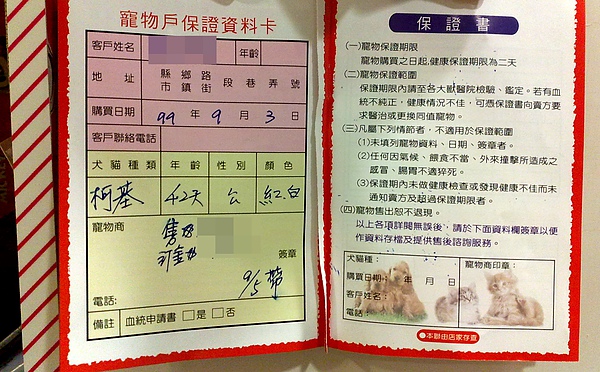 寵物戶保證資料卡
客戶姓名 年齡
地址 縣市 鄉鎮 路街 段 巷 弄 號
購買日期 99 年 9 月 3 日
客戶聯絡電話
犬貓種類 年齡 性別 顏色
柯基 42天 公 紅.白
寵物商
簽章
9/5 帶
電話:
備註 血統申請書 □是 □否
保證書
(一)寵物保證期限
寵物購買之日起,健康保證期限為二天
(二)寵物保證範圍
保證期限內請至各大獸醫院檢驗、鑑定。若有血
統不純正,健康情況不佳,可憑保證書向賣方要
求醫治或更換同值寵物。
(三)凡屬下列情節者,不適用於保證範圍
(1)未填列寵物資料、日期、簽章者。
(2)任何因氣候、餵食不當、外來撞擊所造成之
感冒、腸胃不適猝死。
(3)保證期內未做健康檢查或發現健康不佳而未
通知賣方及超過保證期限者。
(四)寵物售出恕不退現。
以上各項詳閱無誤後,請於下面資料欄簽章以便
作資料存檔及提供售後諮詢服務。
犬貓種: 寵物商印章:
購買日期: 年 月 日
客戶姓名:
電話:
●本聯由店家存查